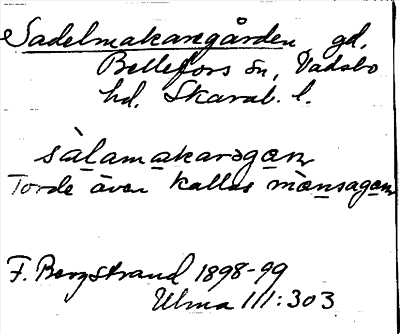 Sadelmakaregården gd,
Bellefors sn, Vadsbo
hd, Skarab. l.
sàlamakaragan
Torde även kallas mànsagan
F. Bergstrand 1898-99
Ulma 111:303